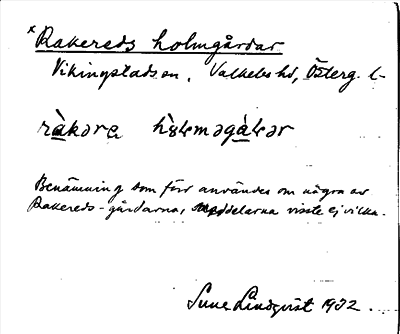 x Rakereds holmgårdar
Vikingstads sn, Valkebo hd, Österg. l-
ràkərə hòlməgàɽər
Benämning som förr användes om några av
Rakereds-gårdarna, meddelarna visste ej vilka.
Sune Lindqvist 1932.